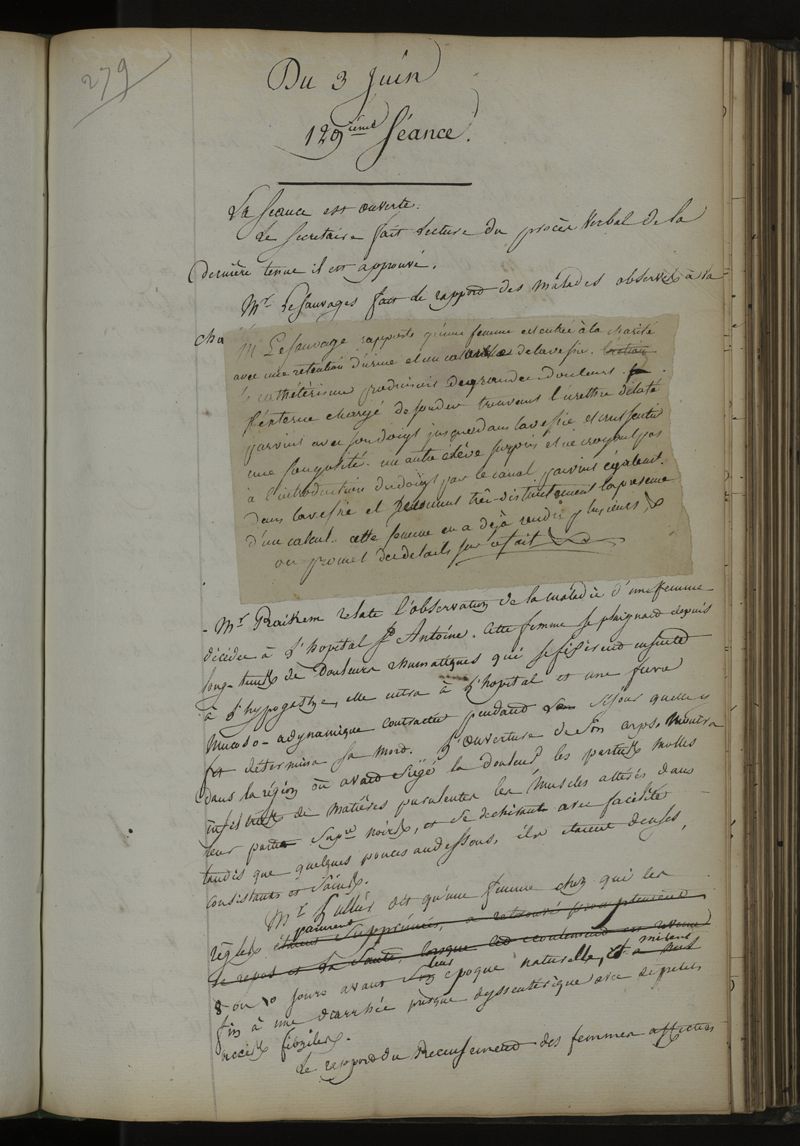 279
Du 3 Juin
129ième Séance.
La Séance est ouverte.
Le Secretaire fait Lecture du procès Verbal de la
dernière tenue il est approuvé.
Mr Lesauvages fait le rapport des malades observés à la
cha
Mr Lesauvage rapporte qu'une femme est entrée à la charité
avec une retention d'urine et un catarrhe de la vessie.
le cathétérisme produisait de grandes douleurs.
l'interne chargé de sonder trouvant l'urethre dilaté
parvint avec son doigt jusques dans la vessie et crut sentir
une fongosité. un autre élève surpris et ne croyant pas
à l'introduction du doigt par le canal parvint également
dans la vessie et reconnut très-distinctement la présence
d'un calcul. cette femme en a déjà rendu plusieurs
on promet des details sur ce fait
- Mr Raikem relate l'observation de la maladie d'une femme
décédée à l'hopital St Antoine. Cette femme se plaignait depuis
long-tems de Douleurs rhumatiques qui se fixèrent ensuite
à l'hypogastre, elle entra à l'hopital et une fievre
Mucoso-adynamique contractée pendant son Séjour quelle y
fit détermina sa mort. L'ouverture de son corps, montra
dans la région où avait Siégé la douleur, les parties molles
infiltrées de matières purulentes les Muscles altérés dans
leur partie Supre noirs, et se déchirant avec facilité
tandis que quelques pouces audessous, ils étaient denses,
consistants et Sains.
Mr Lullier dit qu'une femme chez qui les
règles étaient Supprimées, a retrouvé
le repos et la Santé, lorsque
paraissent
8 ou 10 jours avant leur époque naturelle, et a mis
fin à une diarrhée presque dyssenterique avec de petits
accès fébriles.
Le rapport du Recensement des femmes affectées